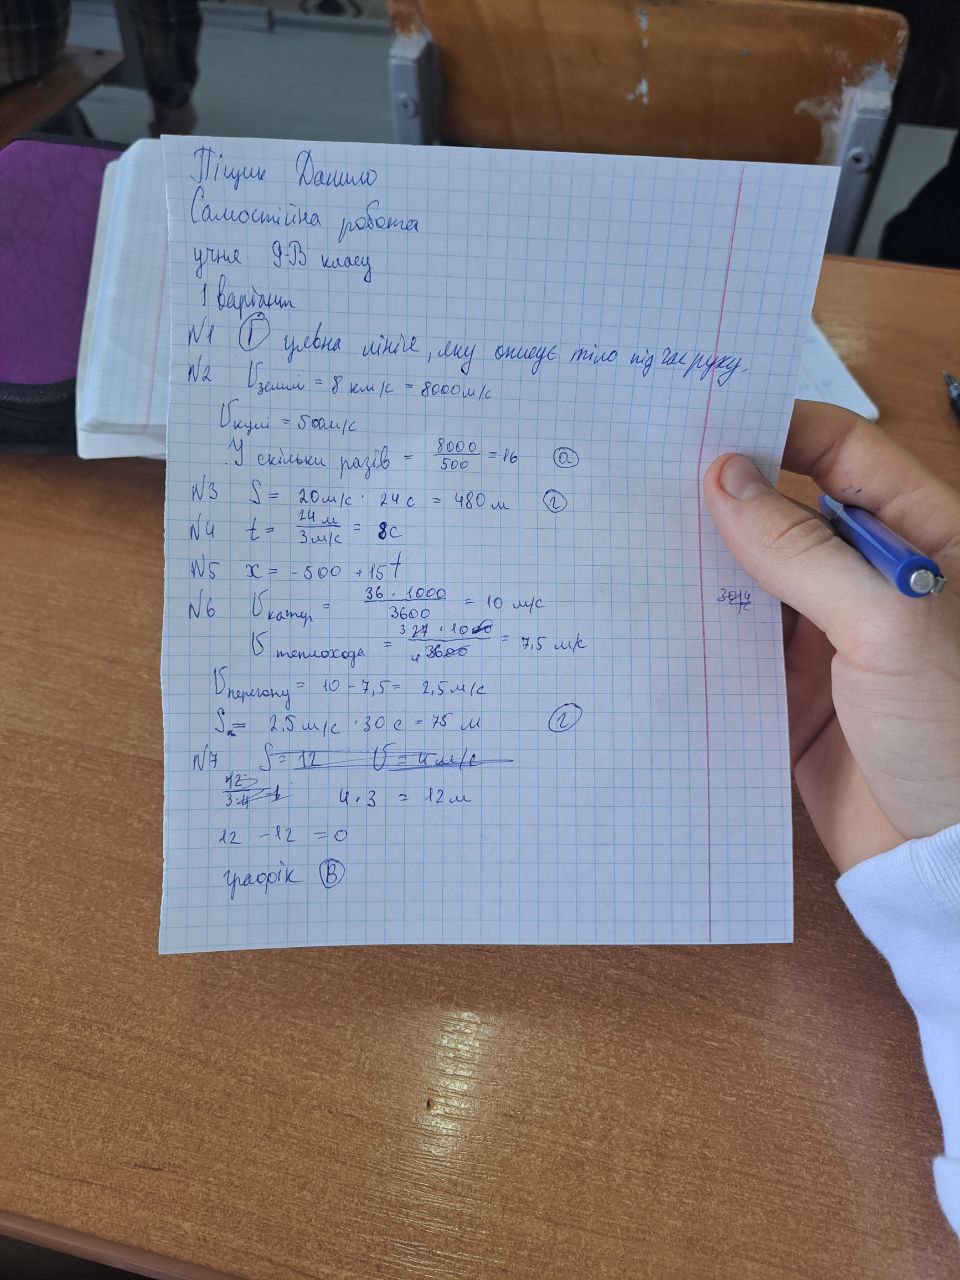 Піщик Данило
Самостійна робота
учня 9-В класу
1 варіант
№1 Г уявна лінія, яку описує тіло під час руху.
№2 υземлі = 8 км/с = 8000м/с
υкулі = 500м/с
У скільки разів = 8000/500 = 16 а
№3 S = 20м/с · 24с = 480м г
№4 t = 24м/3м/с = 8с
№5 x = -500 + 15t
№6 υкатер = 36 · 1000/3600 = 10 м/с
υтеплохода = 3 27 · 1000/4 3600 = 7,5 м/с
υперегону = 10 - 7,5 = 2,5м/с
S = 2,5м/с · 30с = 75 м г
№7 S = 12 υ = 4м/с
4 · 3 = 12м
12 - 12 = 0
графік В